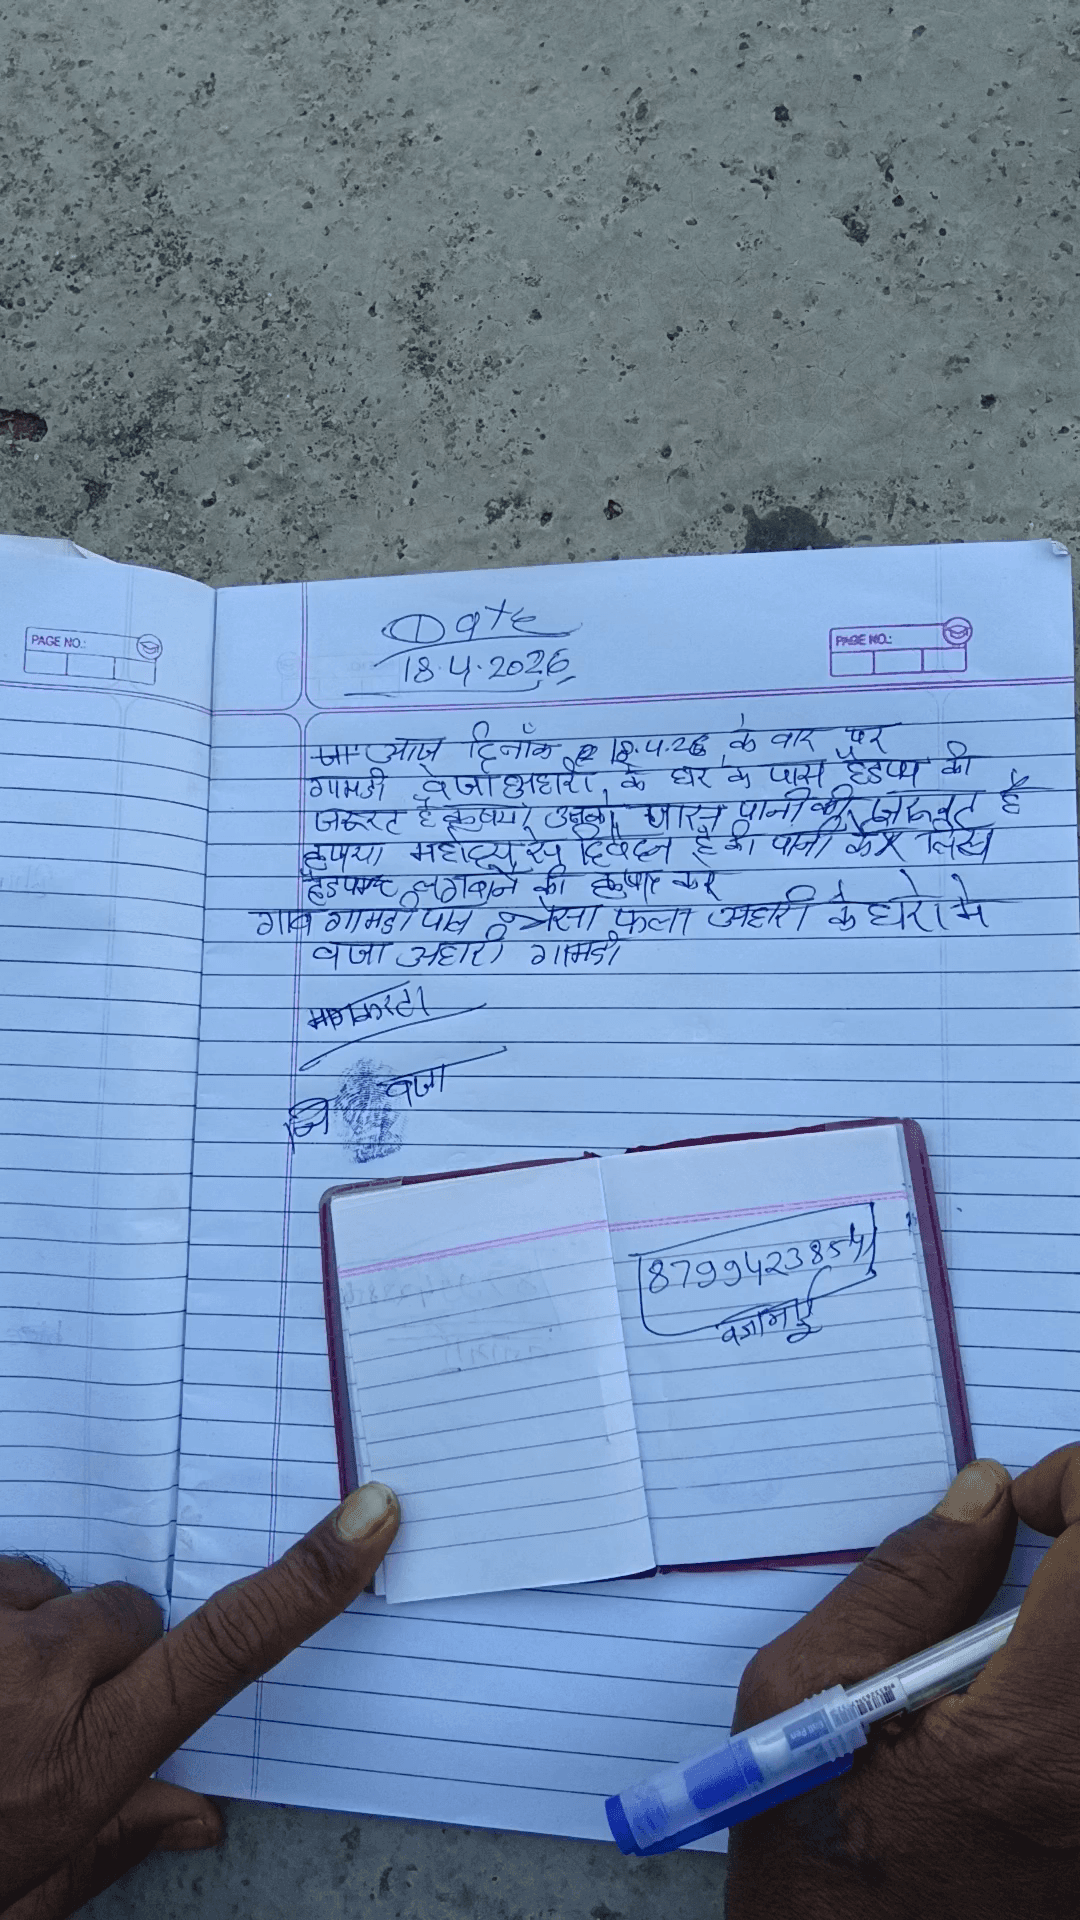 PAGE NO.:
Date
18.4.2026
PAGE NO.:
आज दिनाँक 18.4.26 के वार पर
गामडी वजा अहारी के घर के पास हेडपम्प की
जरूरट है कृपया उनके पास पानी की जरूवट है
कृपया महोदय से निवेदन है की पानी के लिए
हेडपम्प लगवाने की कृपा करे
गाव गामडी पाल फला अहारी के घरो मे
वजा अहारी गामडी
वजा
8799423854
वजाभाई